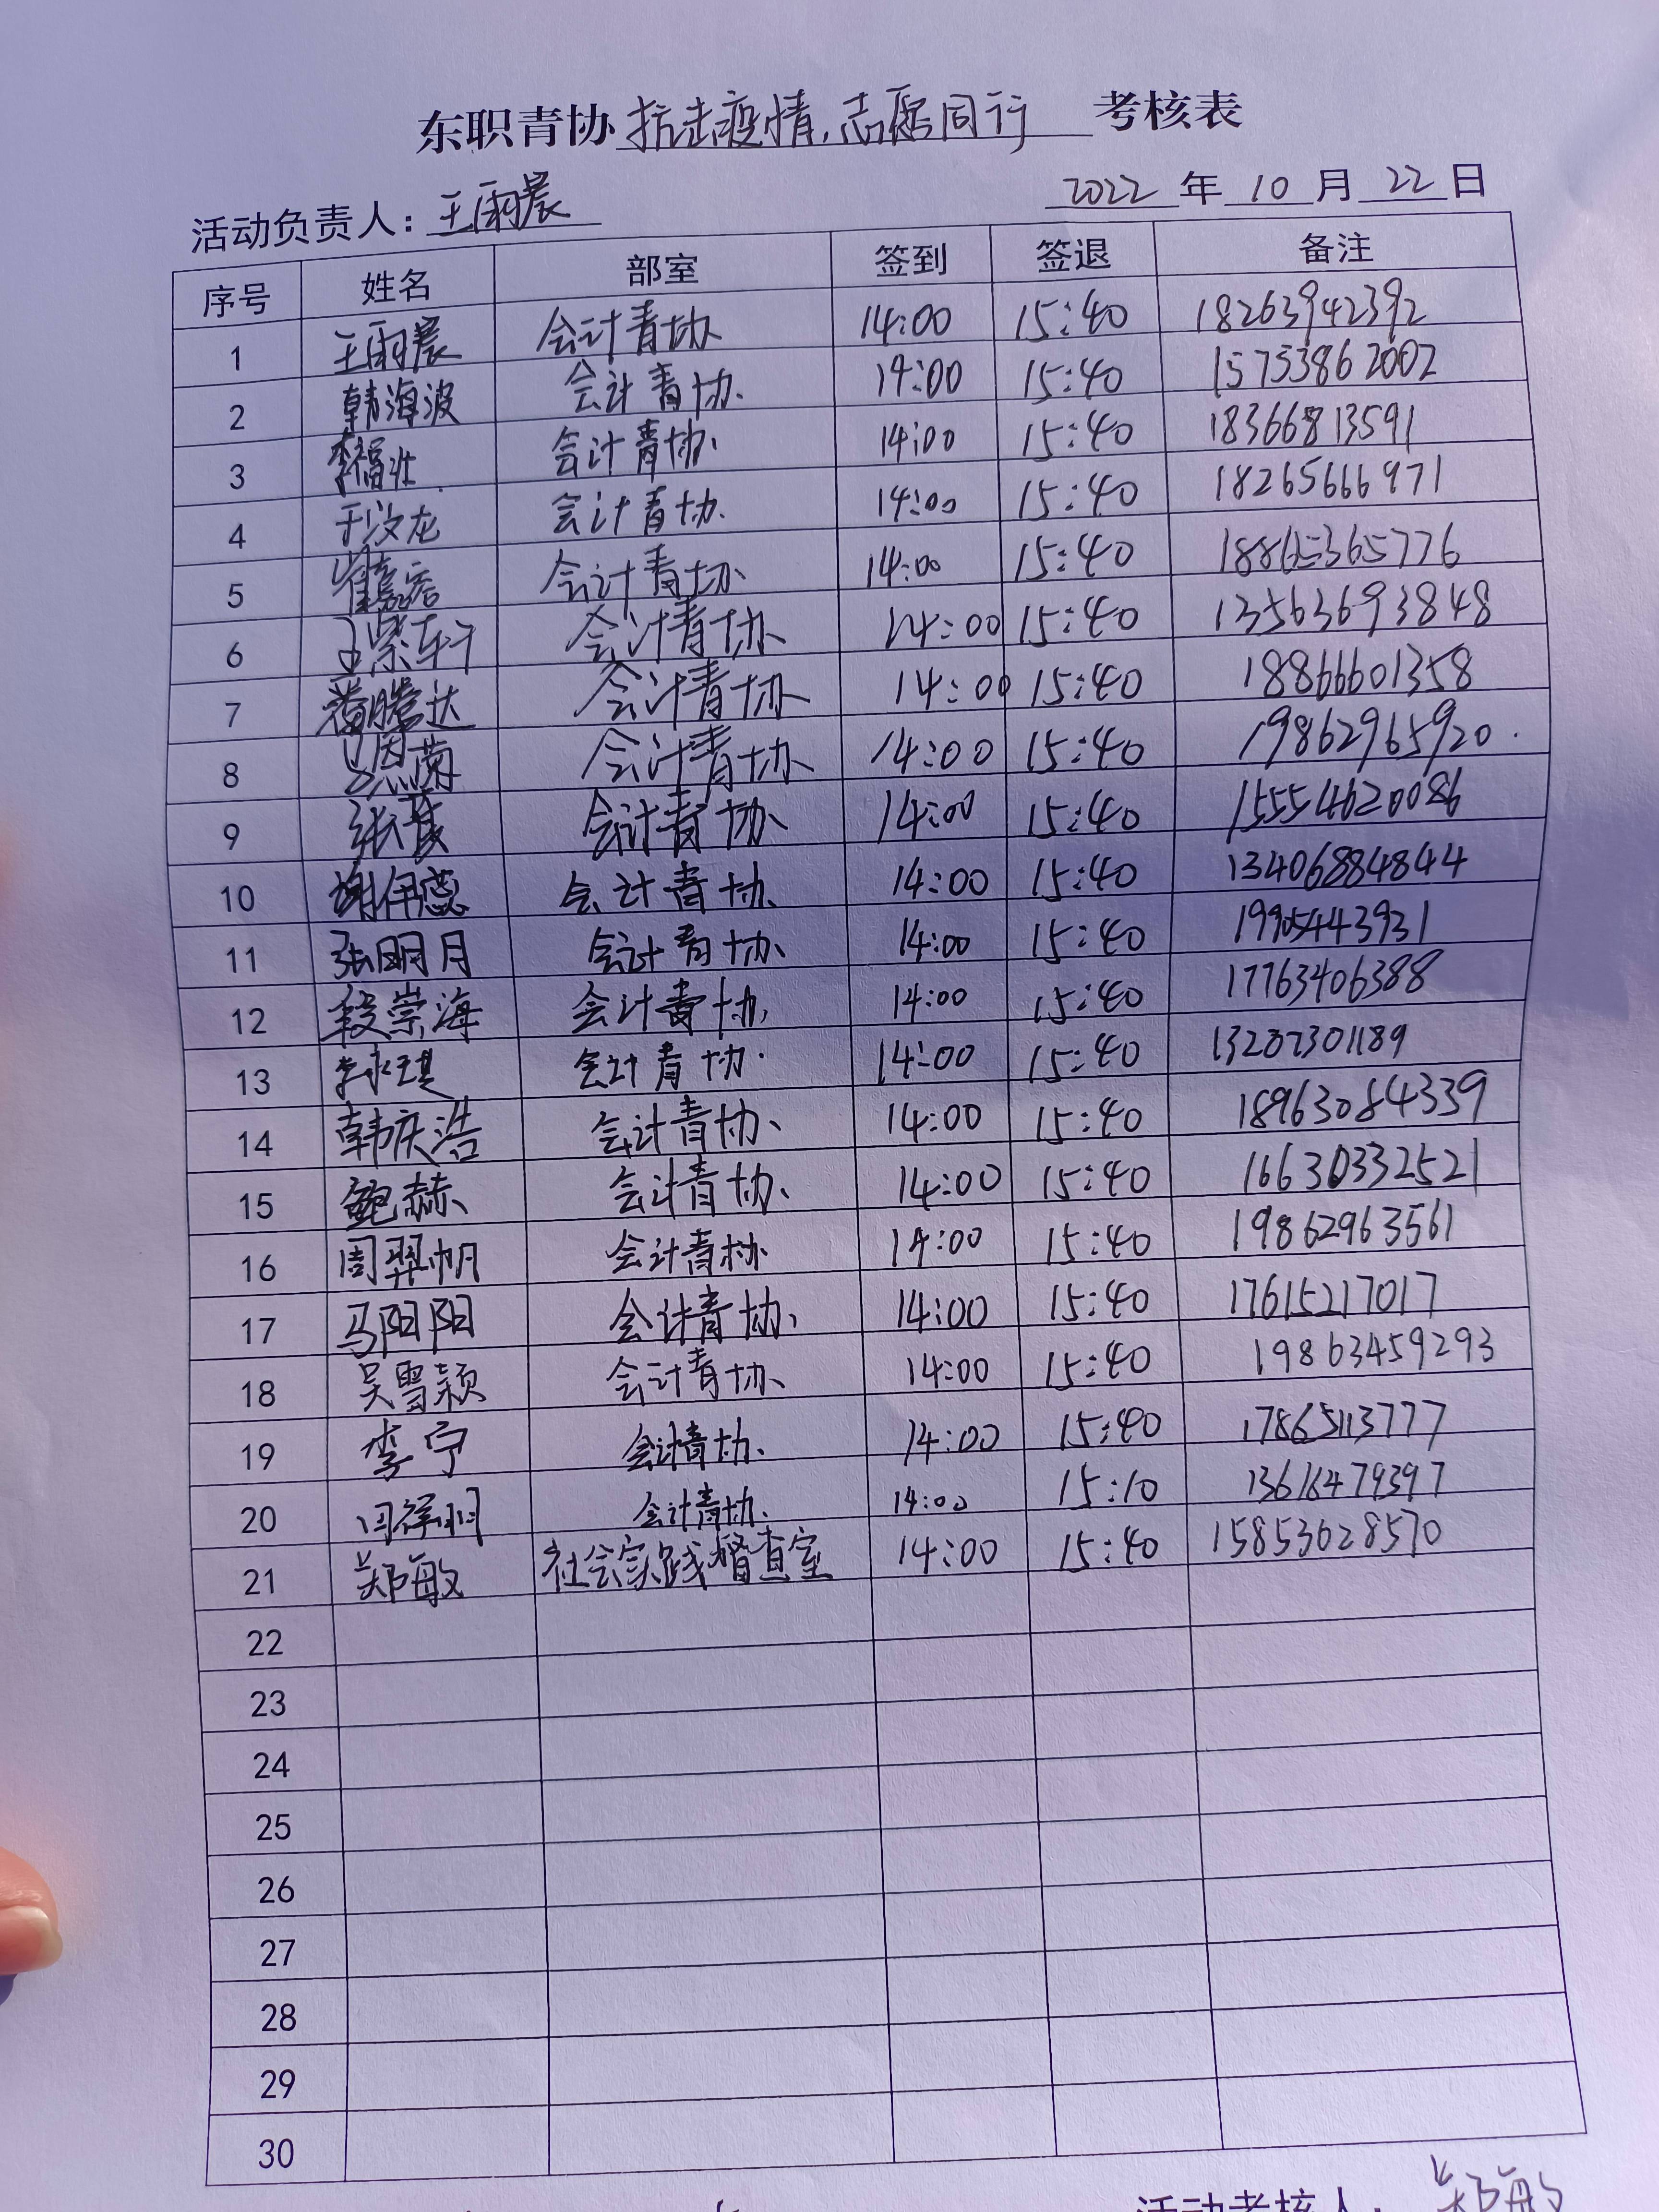 东职青协 抗击疫情,志愿同行 考核表
活动负责人: 王雨晨 2022 年 10 月 22 日
序号 姓名 部室 签到 签退 备注
1 王雨晨 会计青协 14:00 15:40 18263942392
2 韩海波 会计青协. 14:00 15:40 15753862002
3 李福壮 会计青协. 14:00 15:40 18366813591
4 于汶龙 会计青协. 14:00 15:40 18265666971
5 会计青协 14:00 15:40 18865365776
6 王紫轩 会计青协 14:00 15:40 13563693848
7 会计青协 14:00 15:40 18866601358
8 会计青协 14:00 15:40 19862965920.
9 会计青协 14:00 15:40 15554620086
10 会计青协 14:00 15:40 13406884844
11 张明月 会计青协 14:00 15:40 19905443931
12 段崇海 会计青协 14:00 15:40 17763406388
13 李永琪 会计青协. 14:00 15:40 13287301189
14 韩庆浩 会计青协 14:00 15:40 18963084339
15 鲍赫 会计青协 14:00 15:40 16630332521
16 周羿帆 会计青协 14:00 15:40 19862963561
17 马阳阳 会计青协. 14:00 15:40 17615217017
18 吴雪颖 会计青协 14:00 15:40 19863459293
19 李宁 会计青协. 14:00 15:40 17865113777
20 会计青协. 14:00 15:10 13616479397
21 郑敏 社会实践督查室 14:00 15:40 15853628570
22
23
24
25
26
27
28
29
30
活动考核人: 郑敏